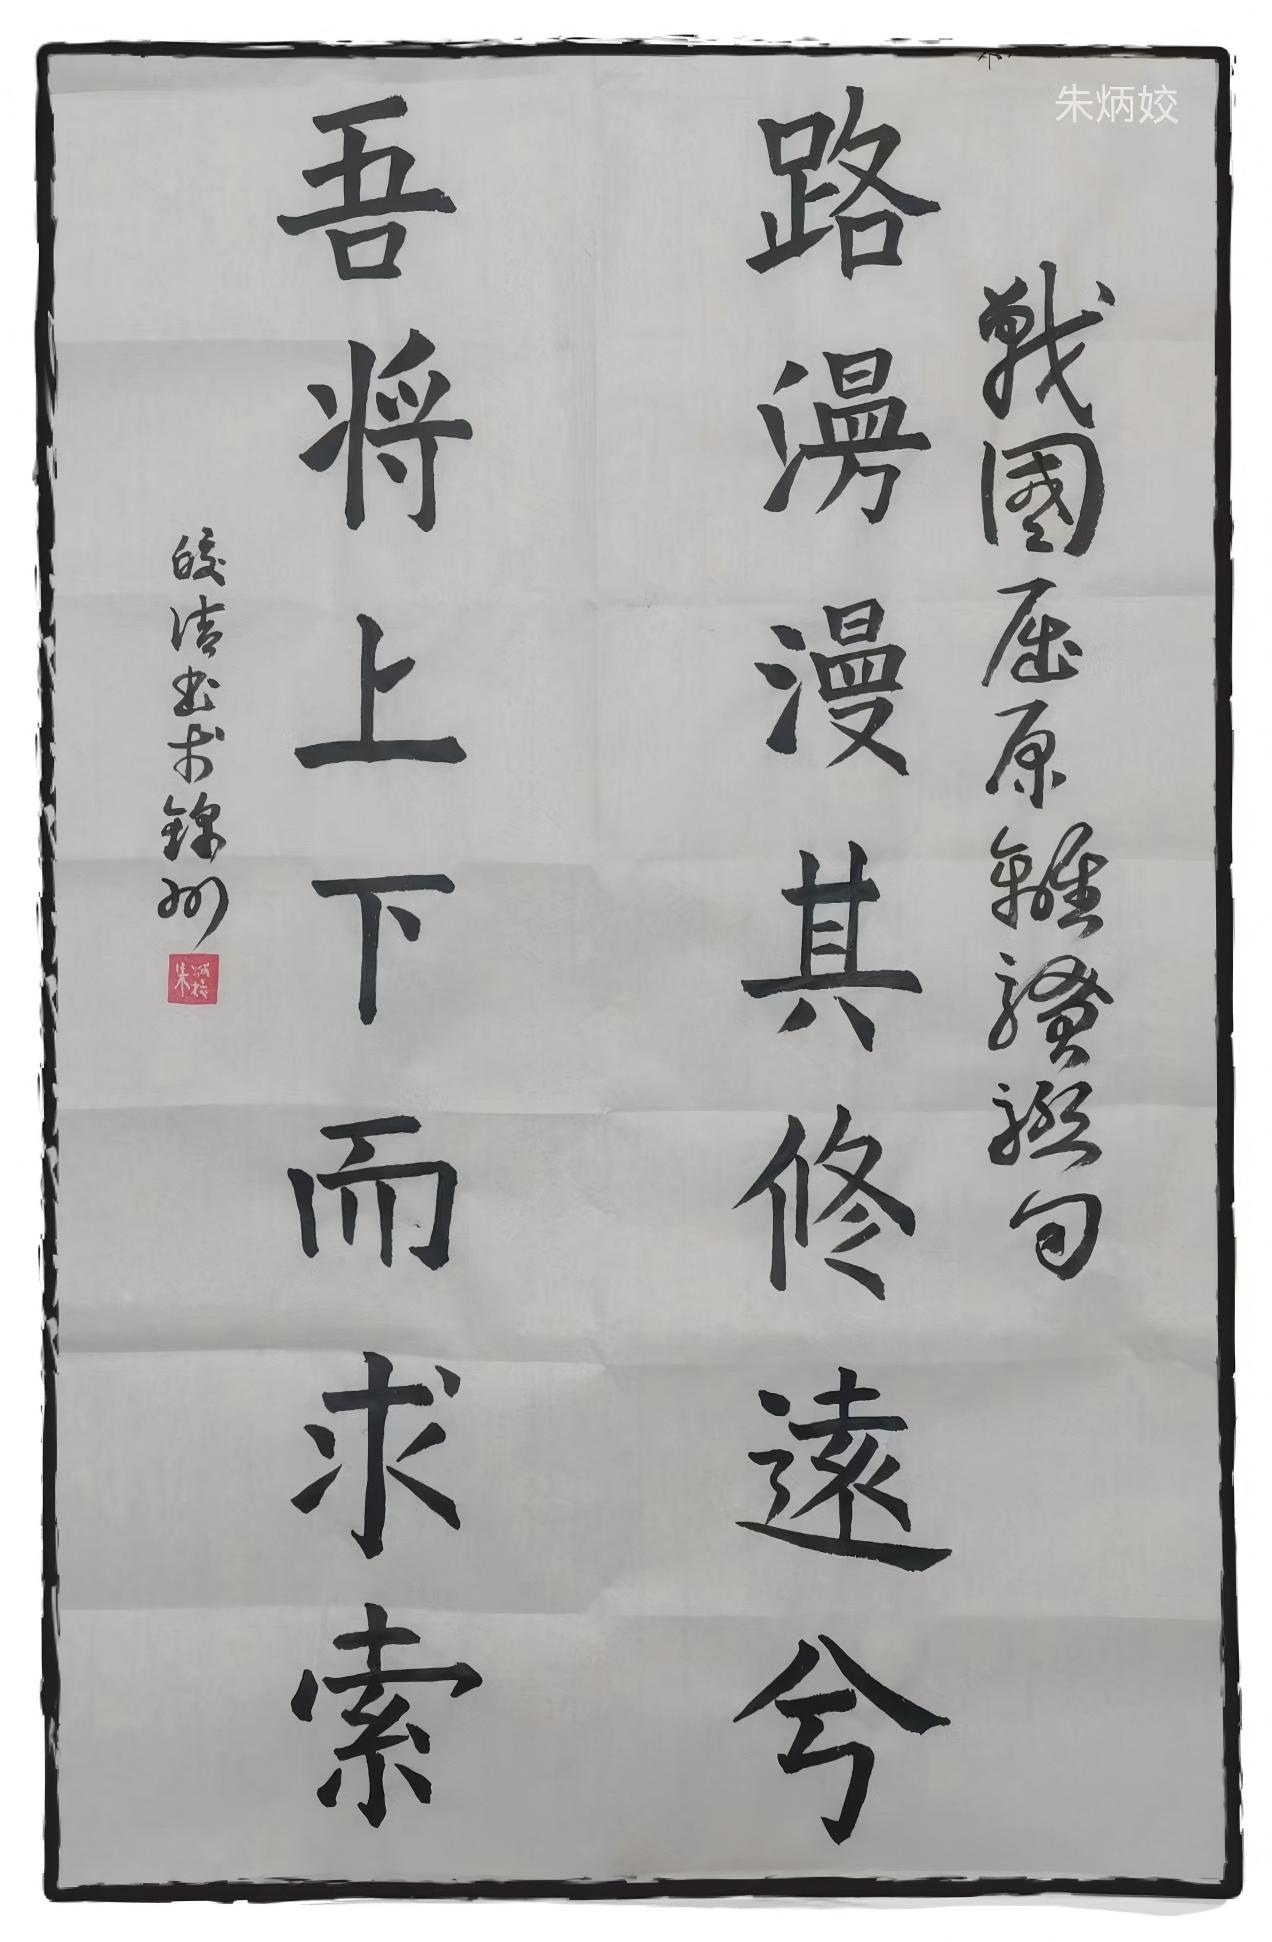 朱炳姣
戰國屈原離騷聯句
路漫漫其修遠兮
吾将上下而求索
皎清书于錦州
朱炳姣